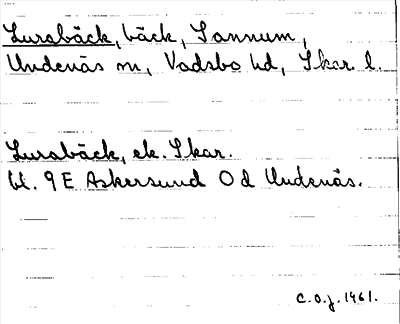 Lurabäck, bäck, Sannum,
Undenäs sn, Vadsbo hd, Skar. l.
Lurabäck, ek. Skar.
bl. 9E Askersund 0d Undenäs.
C.O.J. 1961.